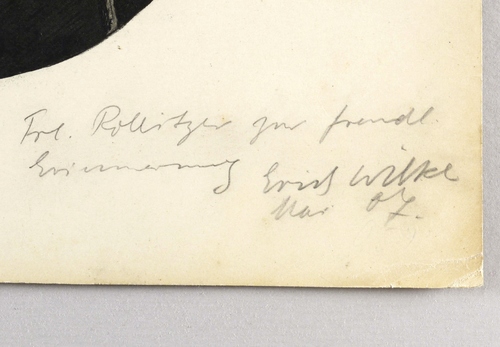 Frl. Pollitzer zur freundl.
Erinnerung Erich Wilke
Mai 07.